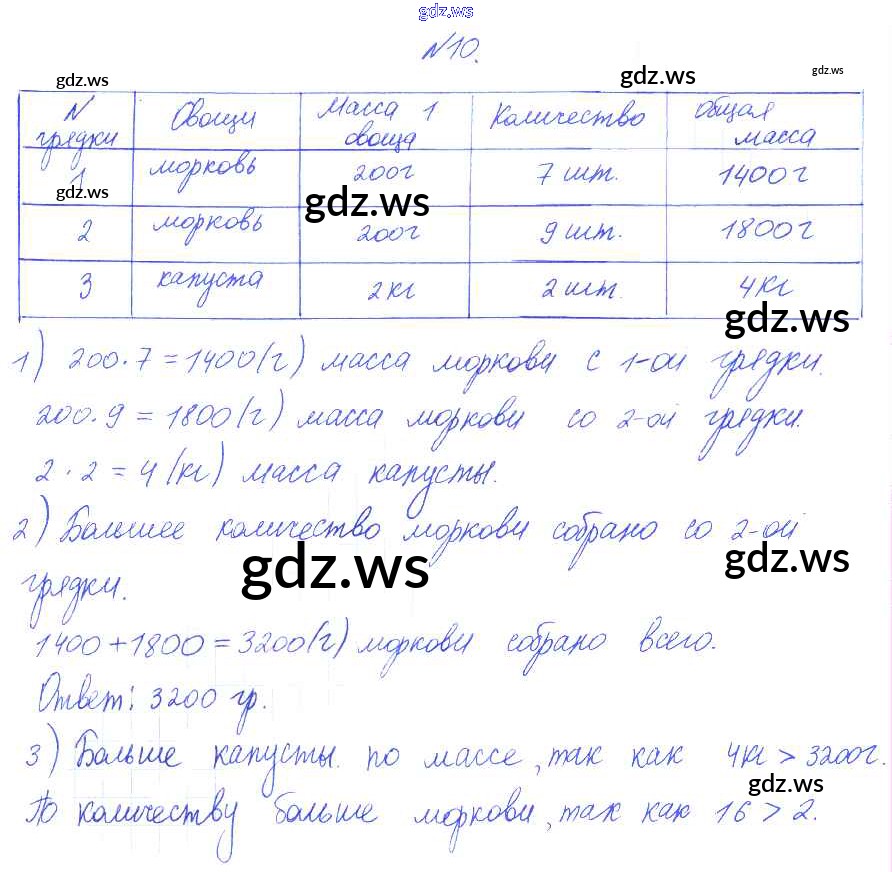 gdz.ws
N10.
gdz.ws gdz.ws gdz.ws
N грядки Овощи Масса 1 овоща Количество Общая масса
1 морковь 200г 7 шт. 1400г
gdz.ws gdz.ws
2 морковь 200г 9 шт. 1800г
3 капуста 2кг 2 шт. 4кг
gdz.ws
1) 200·7=1400(г) масса моркови с 1-ой грядки.
200·9=1800(г) масса моркови со 2-ой грядки.
2·2=4(кг) масса капусты.
2) Большее количество моркови собрано со 2-ой
gdz.ws gdz.ws
грядки.
1400+1800=3200(г) моркови собрано всего.
Ответ: 3200 гр.
3) Больше капусты по массе, так как 4кг > 3200г.
gdz.ws
По количеству больше моркови, так как 16 > 2.